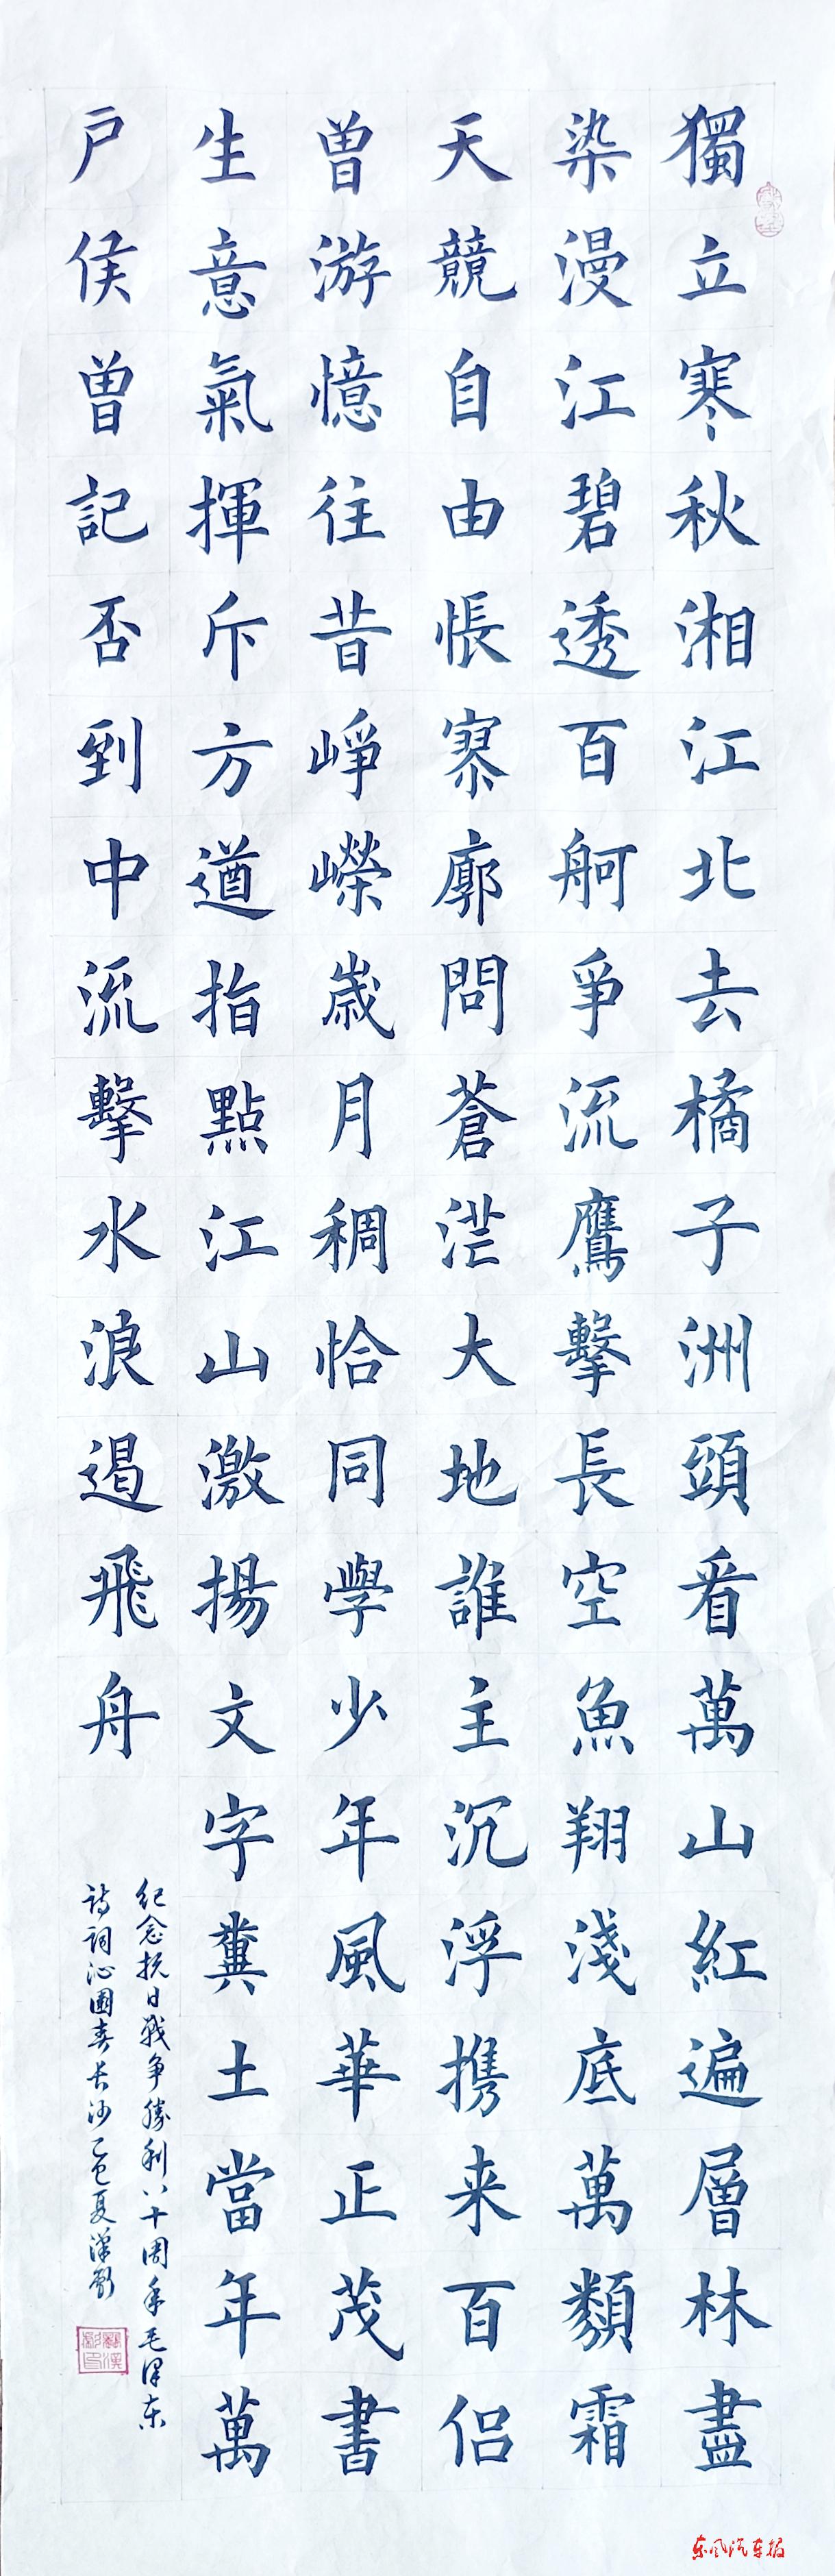 獨立寒秋湘江北去橘子洲頭看萬山紅遍層林盡
染漫江碧透百舸爭流鷹擊長空魚翔淺底萬類霜
天競自由悵寥廓問蒼茫大地誰主沉浮携来百侣
曾游憶往昔崢嶸歲月稠恰同學少年風華正茂書
生意氣揮斥方遒指點江山激揚文字糞土當年萬
户侯曾記否到中流擊水浪遏飛舟
纪念抗日战争勝利八十周年毛泽东
诗词沁園春长沙乙巳夏漢
东风汽车报